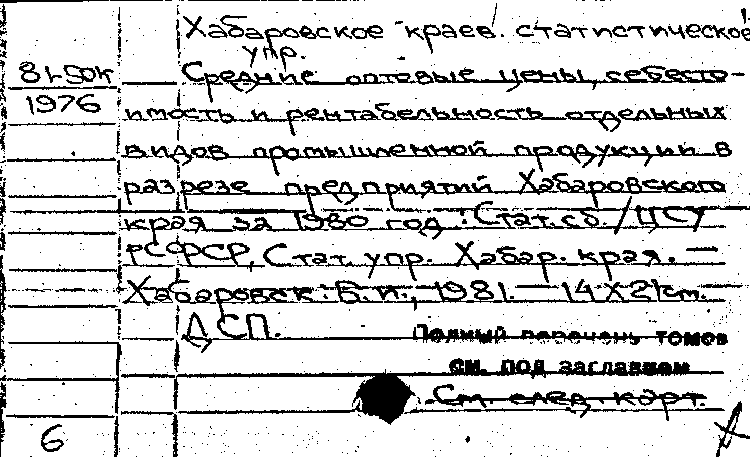 Хабаровское краев. статистическое
упр.
Средние оптовые цены, себесто-
1976
имость и рентабельность отдельных
видов промышленной продукции в
разрезе предприятий Хабаровского
края за 1980 год : Стат. сб. / ЦСУ
РСФСР, Стат. упр. Хабар. края. —
Хабаровск : Б. и., 1981. — 14 х 21 см.
ДСП.
Полный перечень томов
см. под заглавием
См. след. карт.
6